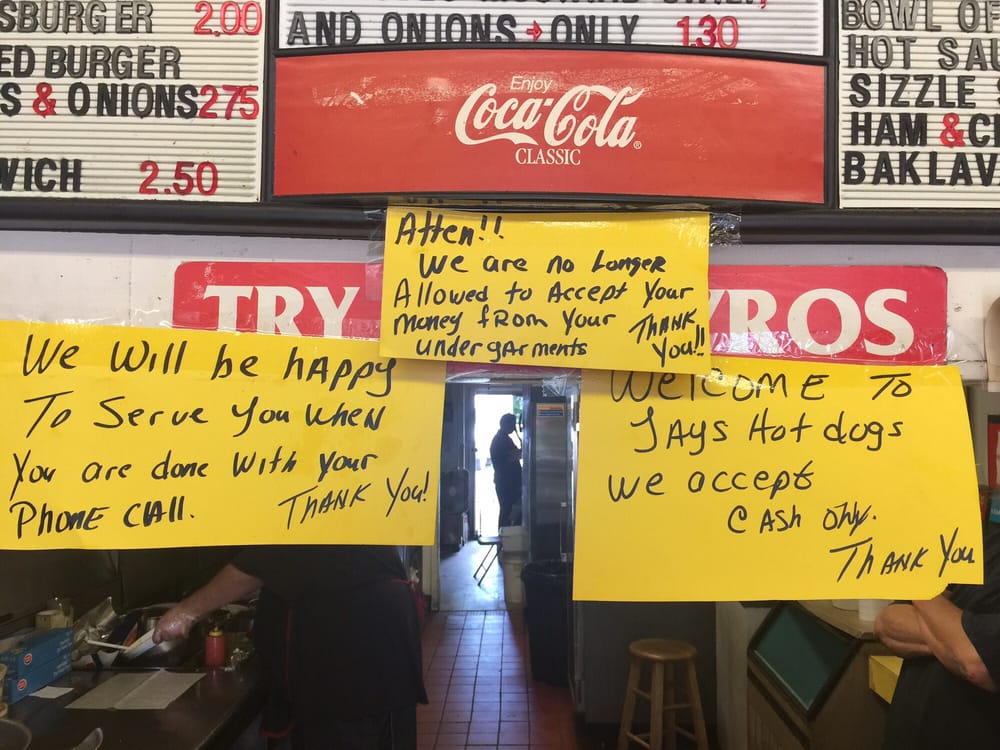 BURGER 2.00
ED BURGER
S & ONIONS 275
WICH 2.50
AND ONIONS → ONLY 1.30
BOWL OF
HOT SAU
SIZZLE S
HAM & C
BAKLAV
Enjoy
Coca-Cola®
CLASSIC
TRY
YROS
Atten!!
We are no Longer
Allowed to Accept Your
money from Your
undergarments
THANK
You!!
We Will be happy
To Serve You when
You are done with your
Phone Call.
THANK You!
Welcome To
JAYS Hot dogs
we accept
CASH only.
THANK You